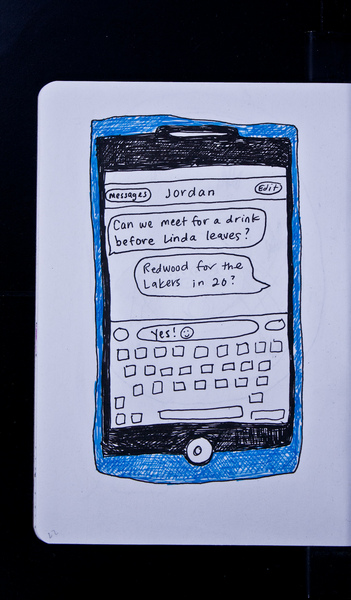 messages Jordan Edit
Can we meet for a drink
before Linda leaves?
Redwood for the
Lakers in 20?
Yes!